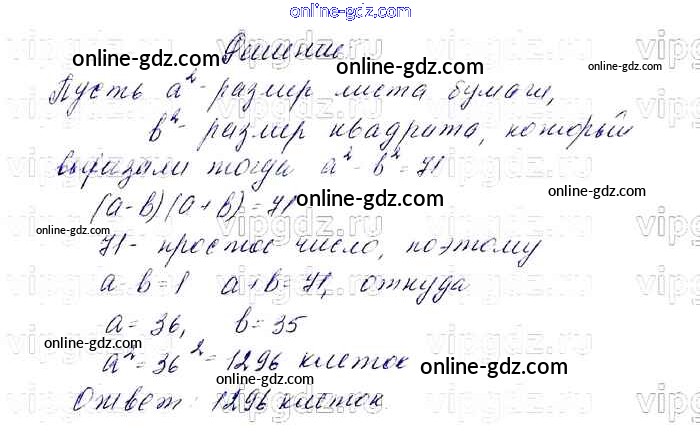 online-gdz.com
Решение
online-gdz.com
online-gdz.com
Пусть a² - размер листа бумаги,
online-gdz.com
b² - размер квадрата, который
online-gdz.com
вырезали тогда a² - b² = 71
(a - b)(a + b) = 71
online-gdz.com
online-gdz.com
71 - простое число, поэтому
online-gdz.com
a - b = 1 a + b = 71, откуда
online-gdz.com
a = 36, b = 35
online-gdz.com
a² = 36² = 1296 клеток
online-gdz.com
Ответ: 1296 клеток
online-gdz.com